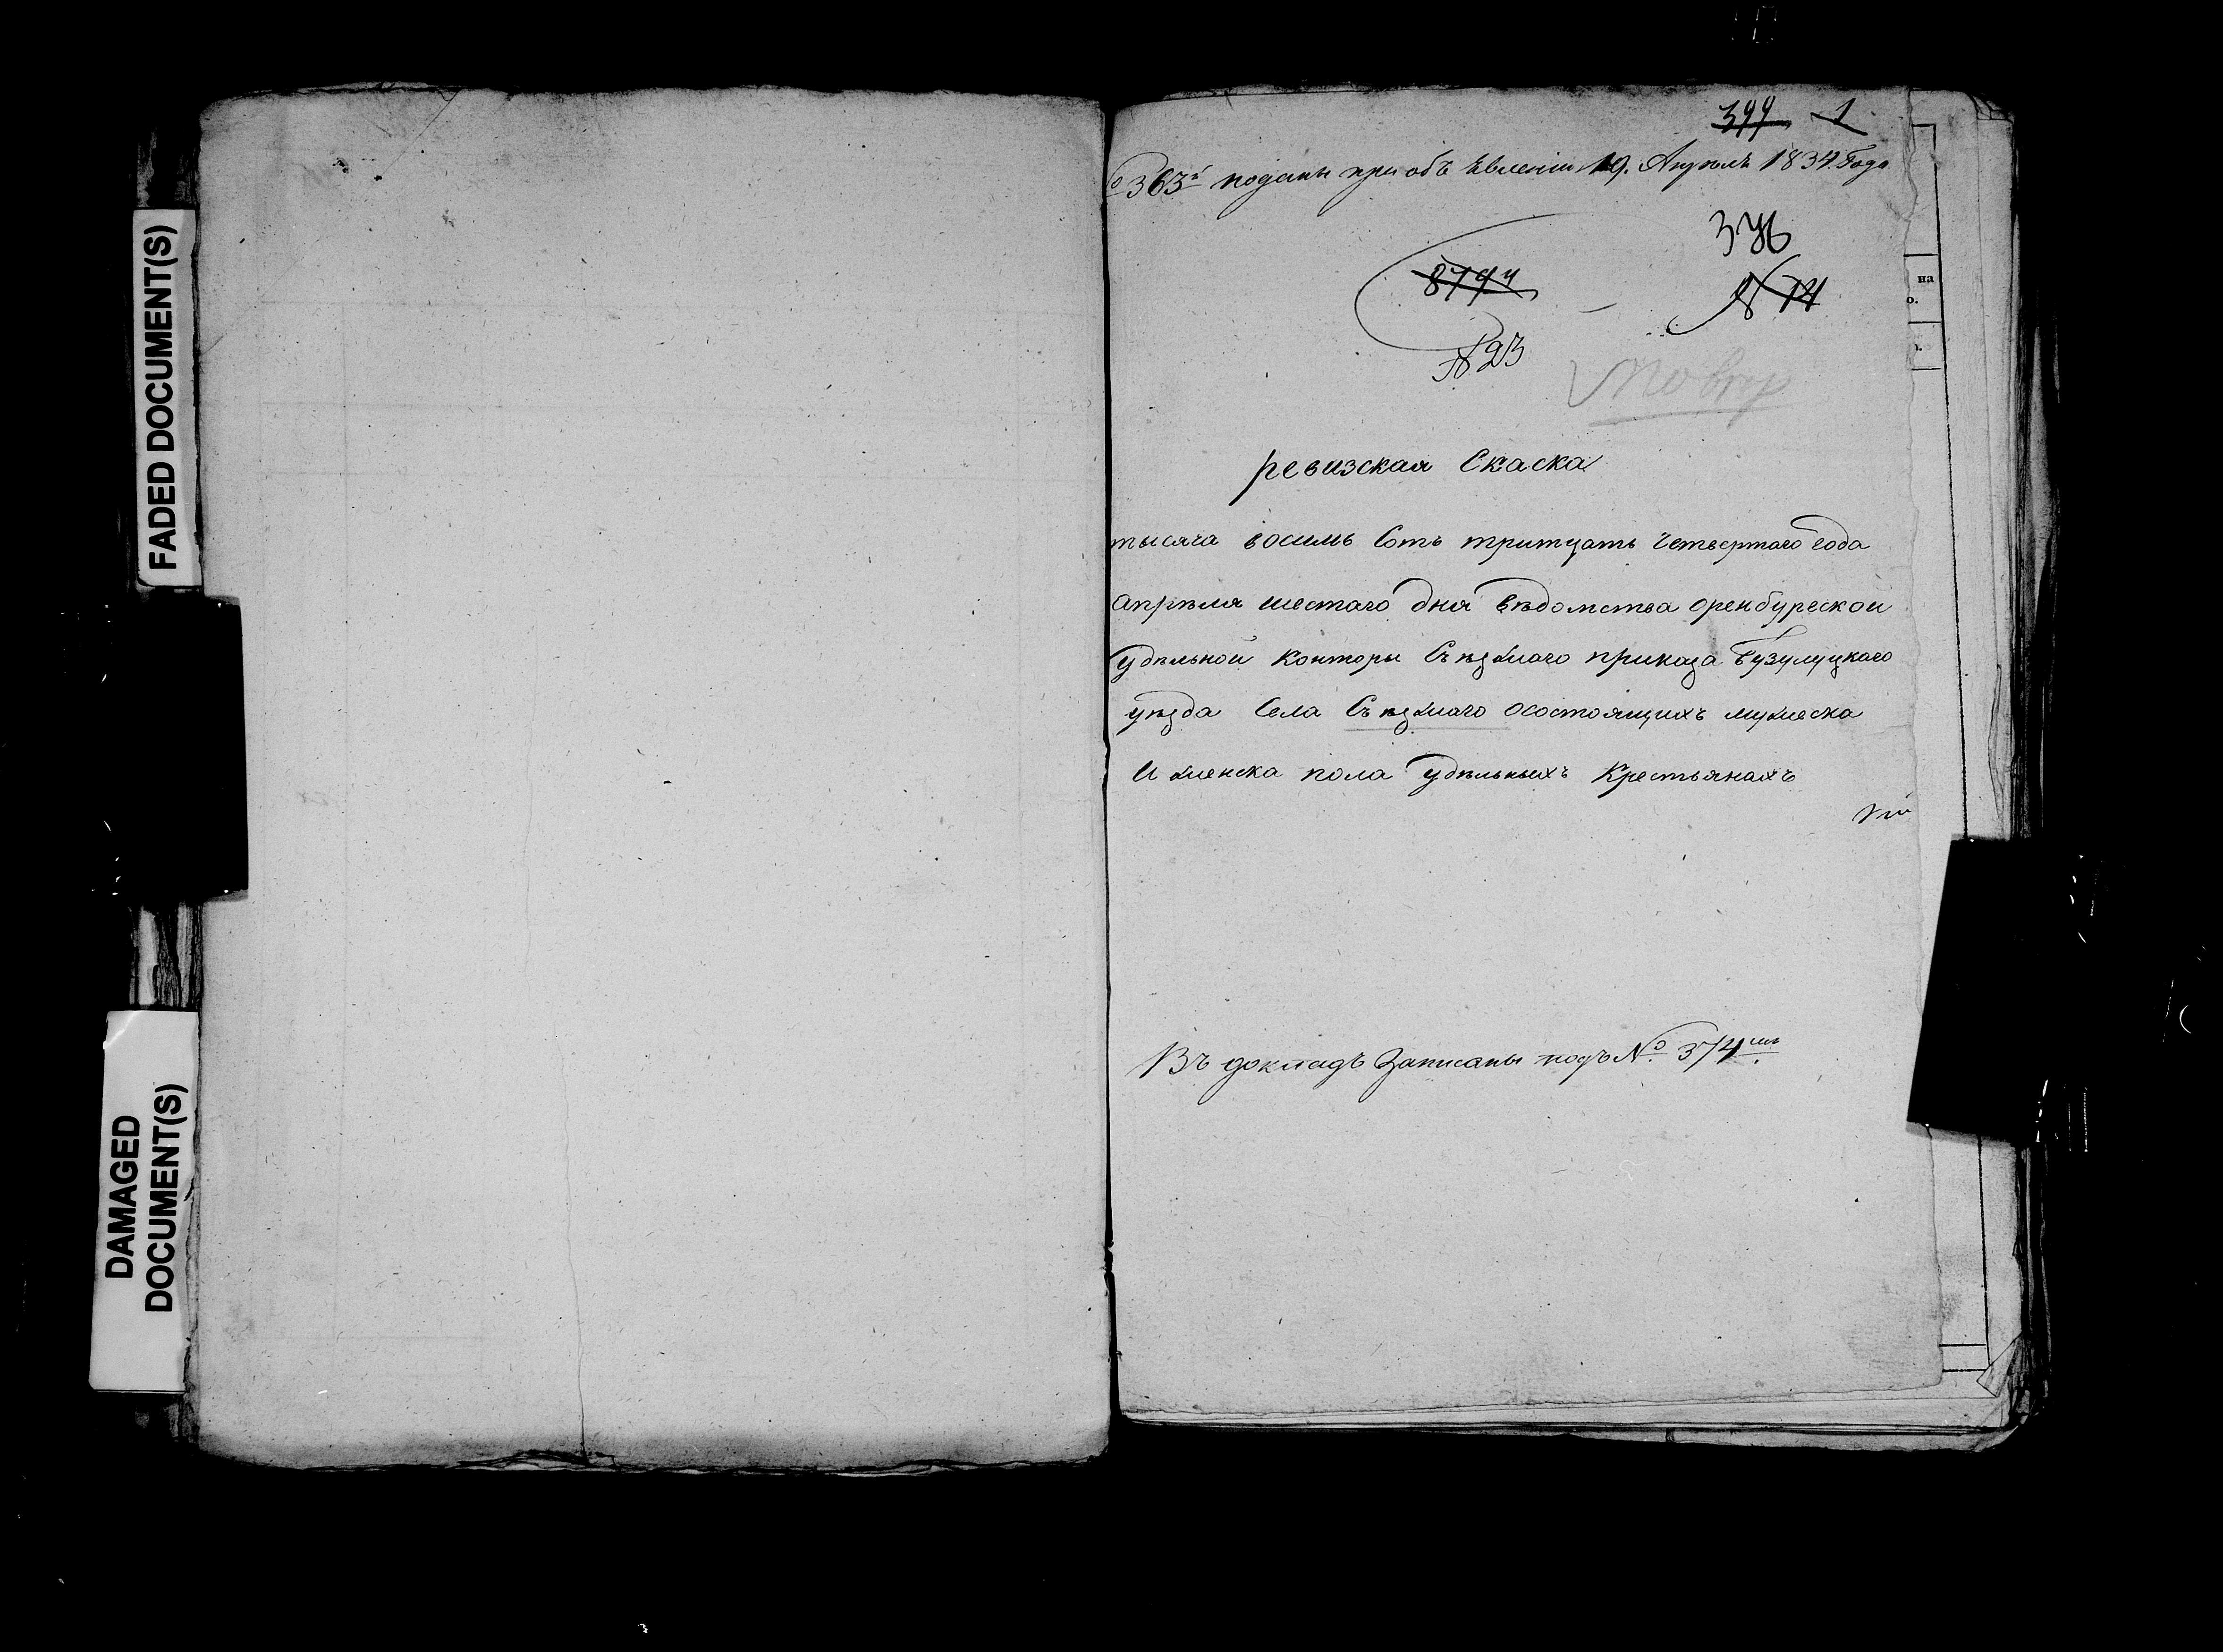 FADED DOCUMENT(S)
DAMAGED
DOCUMENT(S)
399 1
№ 363й поданы при объявленіи 19. Апрѣля 1834. Года
376
879 ч
№ 14
№ 23
ревизская Скаска
тысяча восимь Сотъ тритцать Четвертаго года
апрѣля шестаго дня вѣдомства оренбургской
удѣльной Конторы Съѣзжаго приказа Бузулуцкаго
уѣзда Села Съѣзжаго осостоящихъ мужеска
И женска пола удѣльныхъ Крестьянахъ
Въ докладъ Записаны подъ № 374мъ.
на
о.